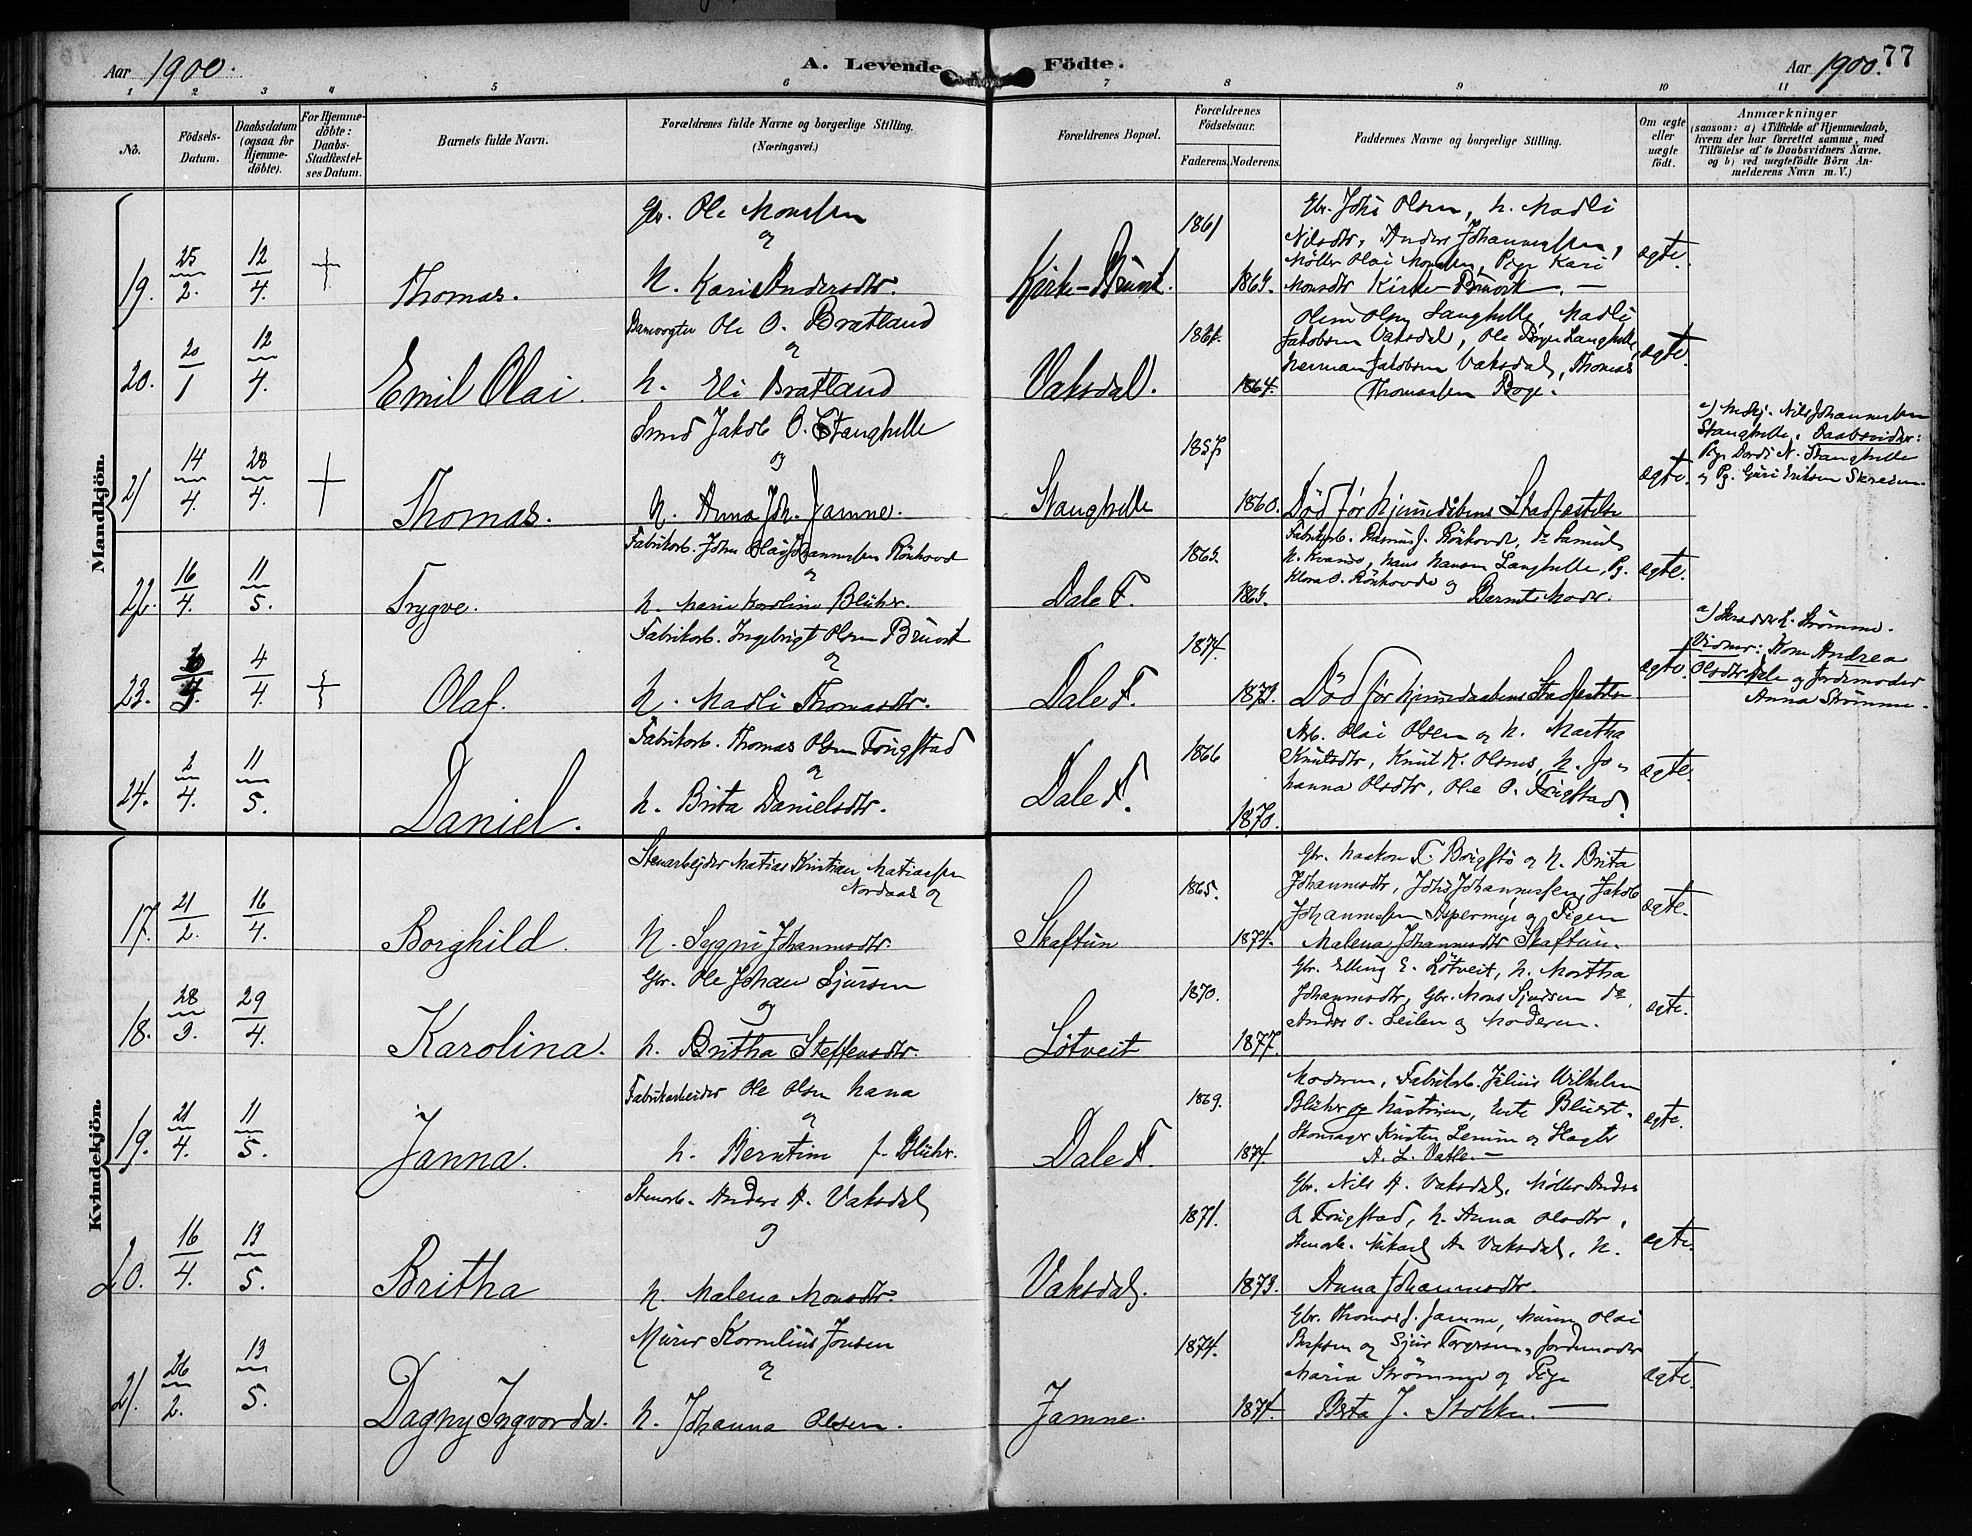 Aar 1900.
A. Levende Födte.
Aar 1900.
77
1 2 3 4 5 6 7 8 9 10 11
No.
Födsels-Datum.
Daabsdatum (ogsaa for Hjemme-döbte).
For Hjemme-döbte: Daabs-Stadfæstel-ses Datum.
Barnets fulde Navn.
Forældrenes fulde Navne og borgerlige Stilling. (Næringsvei.)
Forældrenes Bopæl.
Forældrenes Födselsaar.
Faderens. Moderens.
Faddernes Navne og borgerlige Stilling.
Om ægte eller uægte födt.
Anmærkninger
(saasom: a) i Tilfælde af Hjemmedaab,
hvem der har forrettet samme, med
Tilföielse af to Daabsvidners Navne.
og b) ved uægtefödte Börn An-
melderens Navn m. V.)
Mandkjön.
19. 25/2. 12/4. Thomas.
Gbr. Ole Monssen
og
H. Kari Andersdtr.
Kirke-Bruvik. 1861 1863.
Gbr. Johs Olsen, H. Madli
Nilsdtr, Anders Johannessen,
Møller Olai Monssen, Pige Kari
Monsdtr Kirke-Bruvik. —
ægte.
20. 20/1 12/4. Emil Olai.
Ole O. Bratland
og
H. Eli Bratland
Vaksdal. 1864.
Olsen Langhelle, Madli
Jakobsen Vaksdal, Ole Langhelle,
Herman Jakobsen Vaksdal, Thomas
Thomassen Boge.
ægte.
21 14/4. 28/4. Thomas.
Smed Jakob O. Stanghelle
og
H. Anna Joh. Jamne.
Stanghelle 1857 1860.
Død før Hjemmedåbens Stadfæstelse
ægte.
a) Nils Johannessen
Stanghelle. Daabsvidner:
Pige Dordi N. Stanghelle
og Pg. Guri Eriksen
22. 16/4. 11/5. Trygve.
Fabrikarb. Johan Olai Johannessen Rönhovd
og
H. Marie Karoline Blüher.
Dale F. 1863. 1863.
Fabrikarb. Rasmus J. Rönhovde, do Samuel
H. Kvamme, Hans Hansen Langhelle, Pg.
Klara O. Rönhovde og Barnets Moder.
ægte.
23. 4/4. Olaf.
Fabrikarb. Ingebrigt Olsen Bruvik
og
H. Madli Thomasdtr.
Dale F. 1874. 1873.
Død før Hjemmedaabens Stadfæstelse
ægte.
a) Strømme.
Vidner: Kone Andrea
Olsdtr Dale og Jordemoder
Anna Strømme.
24. 2/4. 11/5. Daniel.
Fabrikarb. Thomas Olsen Fougstad
og
H. Brita Danielsdtr.
Dale F. 1866 1870.
Arb. Olai Olsen og H. Martha
Knutsdtr, Knut K. Olsnes, H. Jo-
hanna Olsdtr, Ole O. Fougstad.
ægte.
Kvindekjön.
17. 21/2. 16/4. Borghild.
Stenarbejder Matias Kristian Matiassen
Nordaas og
H. Sygni Johannesdtr.
Skaftun 1865. 1874.
Gbr. Haakon T. og H. Brita
Johannesdtr, Johs Johannessen, Jakob
Johannessen Aspermyr og Pigen
Malena Johannesdtr Skaftun.
ægte.
18. 28/3. 29/4. Karolina.
Gbr. Ole Johan Sjursen
og
H. Britha Steffensdtr.
Lötveit 1870. 1877.
Gbr. Elling E. Lötveit, H. Martha
Johannesdtr, Gbr. Mons Sjursen do,
Anders O. Leilen og Moderen.
ægte.
19. 21/4. 11/5. Janna.
Fabrikarbeider Ole Olsen Hana
og
H. Berntine f. Blüher.
Dale F. 1869. 1874.
Moderen, Fabrikarb. Julius Wilhelm
Blüher og Hustruen,
Skomager Kristen og Slagter
A. L. Vatle. —
ægte.
20. 16/4. 13/5. Britha
Stenarb. Anders A. Vaksdal
og
H. Malena Monsdtr.
Vaksdal. 1871. 1873.
Gbr. Nils A. Vaksdal, Møller Anders
O Fougstad, H. Anna Olsdtr,
Stenarb. Mikael A. Vaksdal, H.
Anna Johannesdtr.
ægte.
21. 26/2. 13/5. Dagny Ingvorda.
Murer Kornelius Jonsen
og
H. Johanna Olsen.
Jamne. 1874. 1874.
Gbr. Thomas J. Jamne, Murer Olai
og Sjur Torgersen, Jordemoder
Maria Strømme og Pige
Berta J. Stokke. —
ægte.